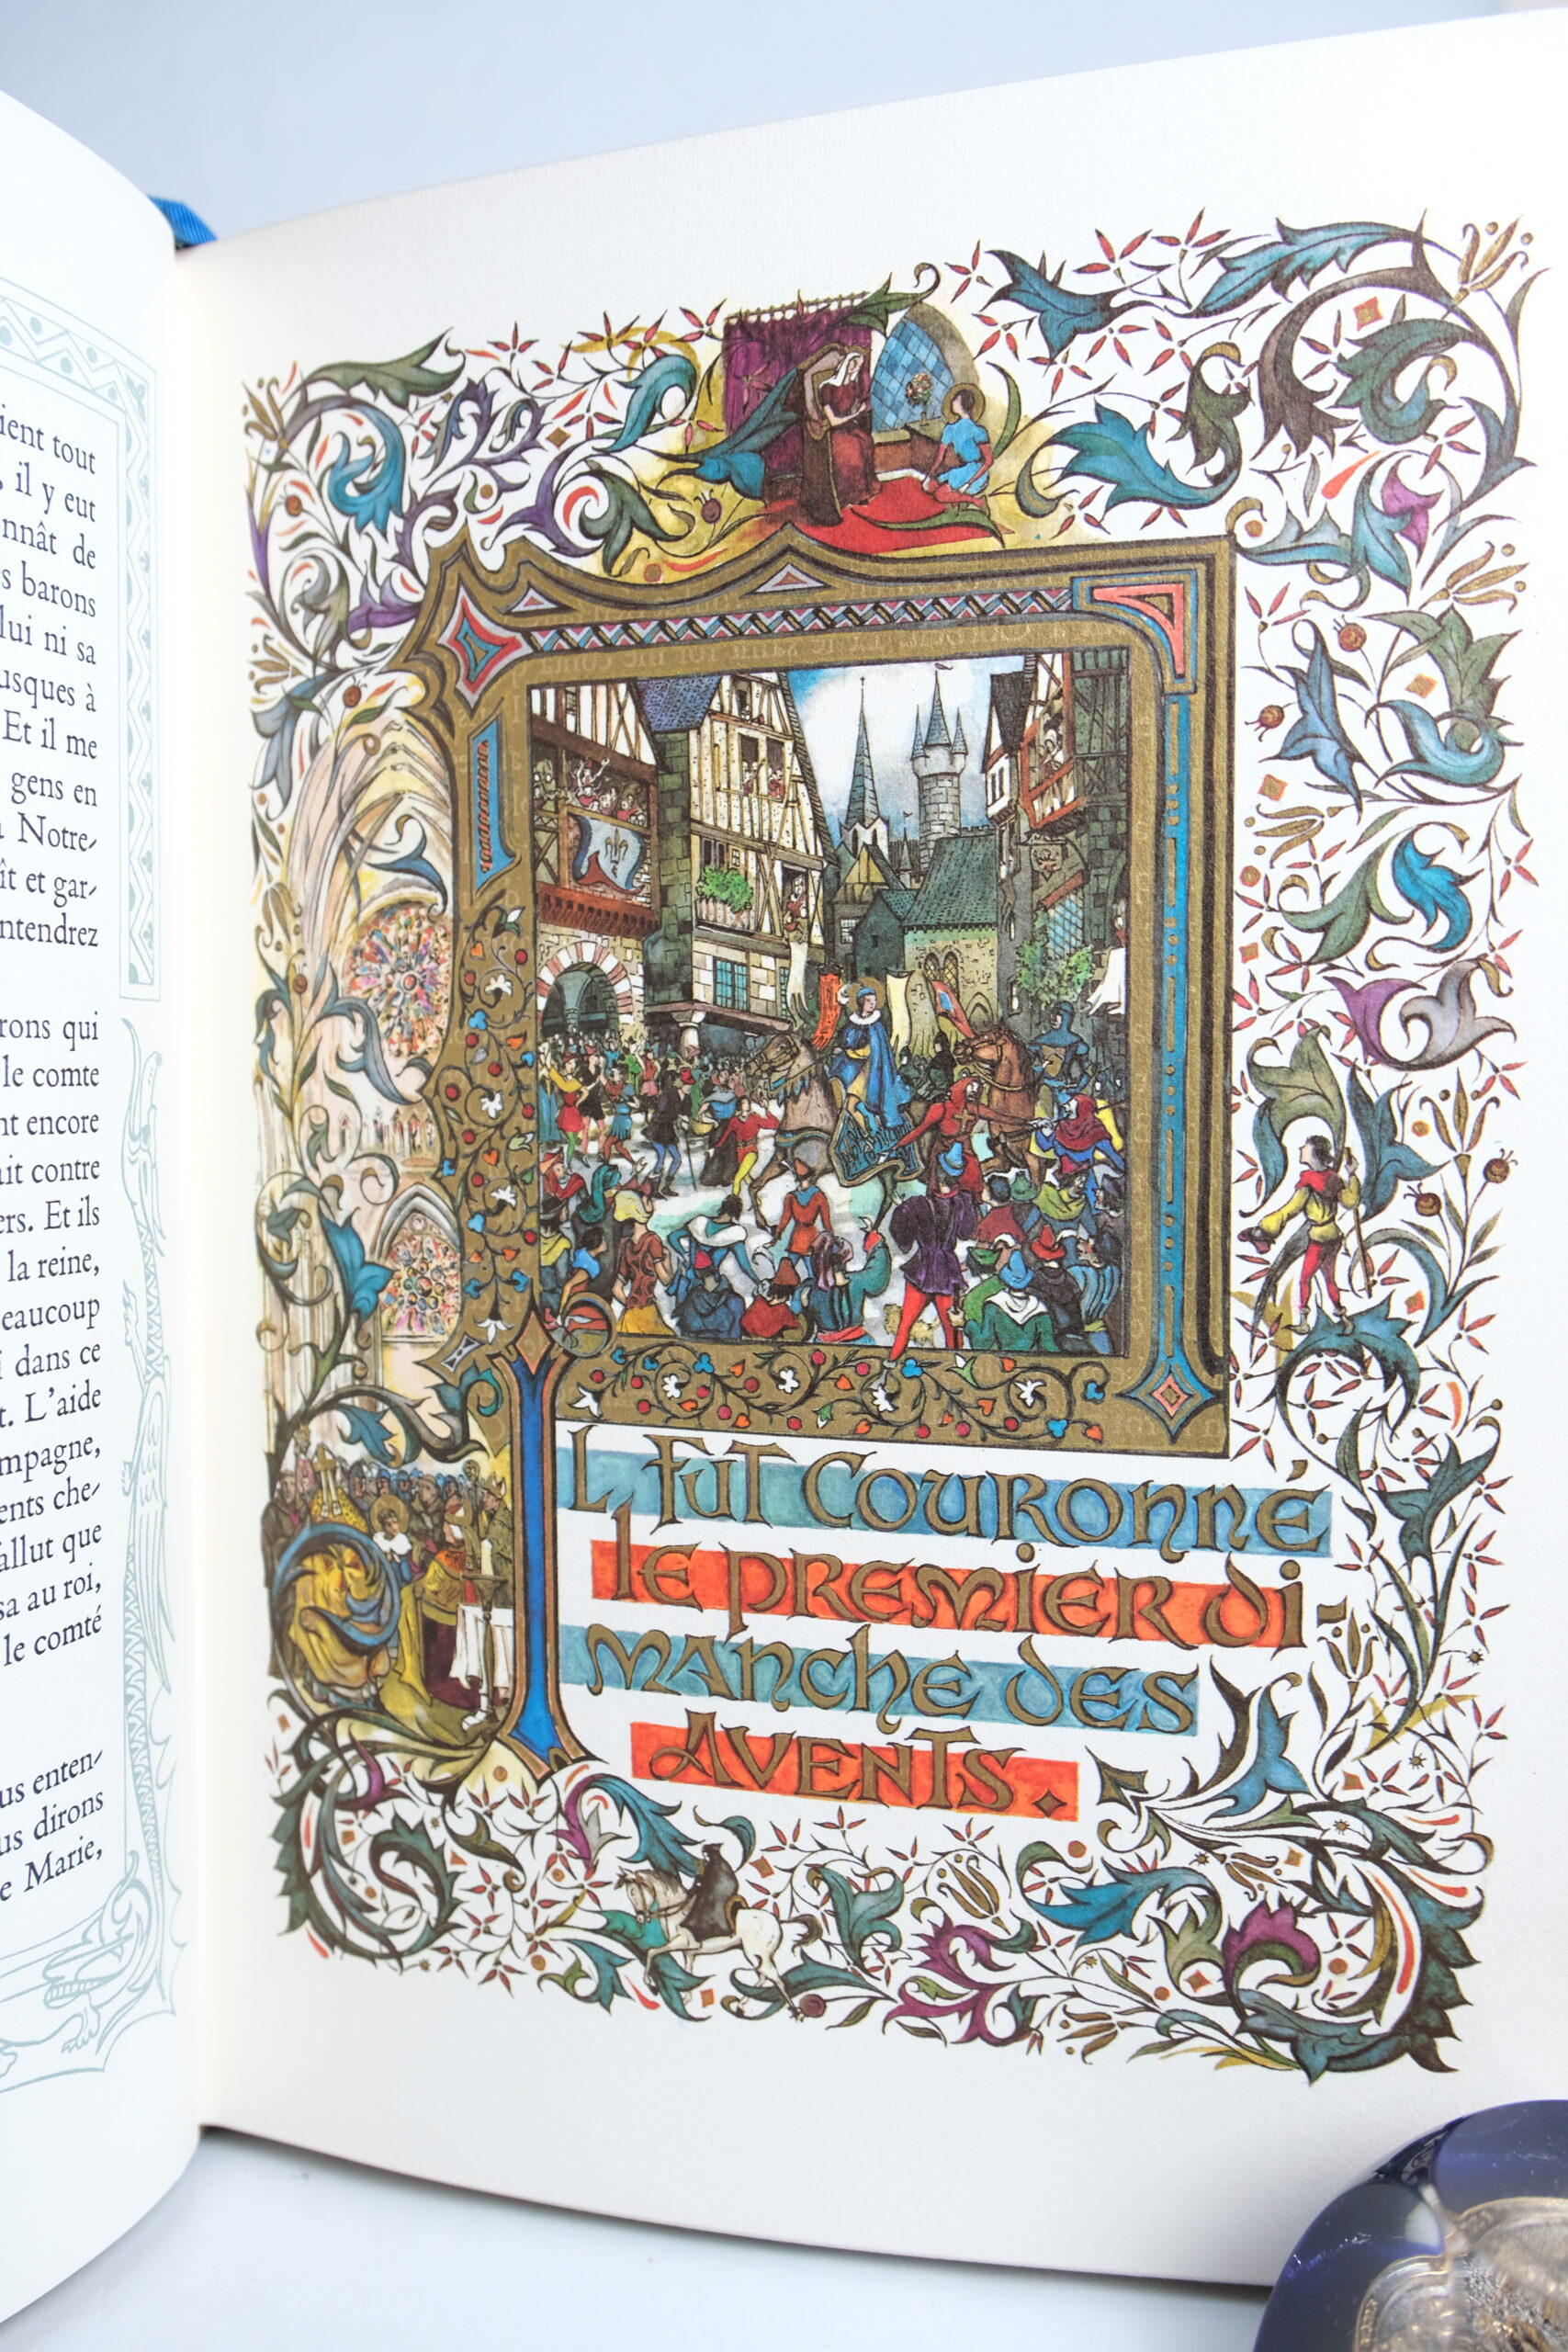 ient tout
, il y eut
onnât de
s barons
lui ni sa
usques à
Et il me
gens en
Notre-
ît et gar-
ntendrez
rons qui
le comte
nt encore
ait contre
ers. Et ils
la reine,
eaucoup
i dans ce
t. L'aide
mpagne,
ents che-
allut que
sa au roi,
le comté
us enten-
us dirons
e Marie,
IL fut Couronné
le premier di-
manche des
Avents.